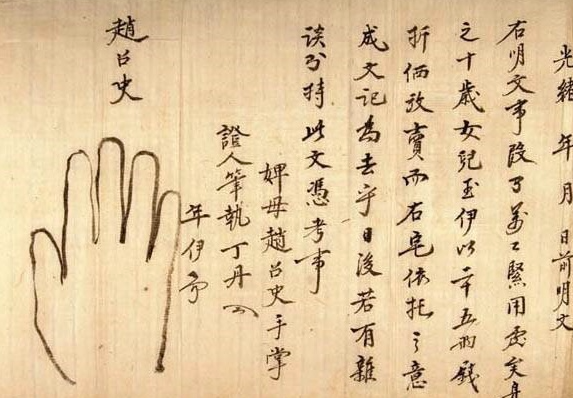 光緖 年 月 日前明文
右明文事段萬緊用處矣身
之十歲女兒玉伊以五兩錢
折価放賣而右宅依托之意
成文記爲去乎日後若有雜
談則持此文憑考事
婢母趙召史手掌
證人筆執丁丹
年伊
趙召史